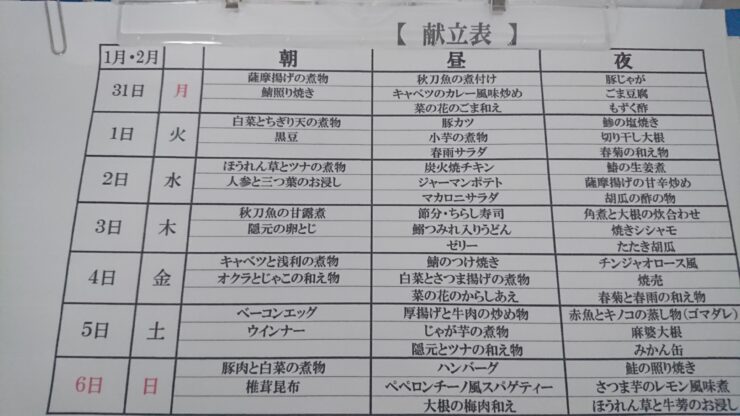 【 献立表 】
1月・2月 朝 昼 夜
薩摩揚げの煮物 秋刀魚の煮付け 豚じゃが
31日 月 鯖照り焼き キャベツのカレー風味炒め ごま豆腐
菜の花のごま和え もずく酢
白菜とちぎり天の煮物 豚カツ 鯵の塩焼き
1日 火 黒豆 小芋の煮物 切り干し大根
春雨サラダ 春菊の和え物
ほうれん草とツナの煮物 炭火焼チキン 鰆の生姜煮
2日 水 人参と三つ葉のお浸し ジャーマンポテト 薩摩揚げの甘辛炒め
マカロニサラダ 胡瓜の酢の物
秋刀魚の甘露煮 節分・ちらし寿司 角煮と大根の炊合わせ
3日 木 隠元の卵とじ 鰯つみれ入りうどん 焼きシシャモ
ゼリー たたき胡瓜
キャベツと浅利の煮物 鯖のつけ焼き チンジャオロース風
4日 金 オクラとじゃこの和え物 白菜とさつま揚げの煮物 焼売
菜の花のからしあえ 春菊と春雨の和え物
ベーコンエッグ 厚揚げと牛肉の炒め物 赤魚とキノコの蒸し物(ゴマダレ)
5日 土 ウインナー じゃが芋の煮物 麻婆大根
隠元とツナの和え物 みかん缶
豚肉と白菜の煮物 ハンバーグ 鮭の照り焼き
6日 日 椎茸昆布 ペペロンチーノ風スパゲティー さつま芋のレモン風味煮
大根の梅肉和え ほうれん草と牛蒡のお浸し